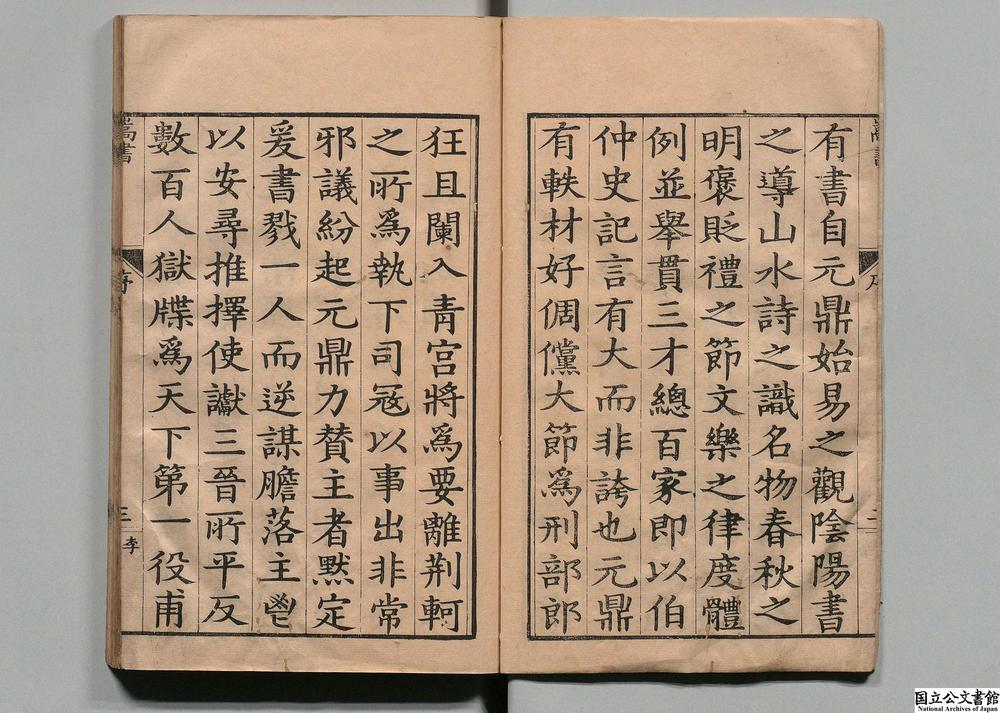 有書自元鼎始易之觀陰陽書
之導山水詩之識名物春秋之
明褒貶禮之節文樂之律度體
例並舉貫三才總百家即以伯
仲史記言有大而非誇也元鼎
有軼材好倜儻大節爲刑部郎
狂且闌入青宮將爲要離荆軻
之所爲執下司冦以事出非常
邪議紛起元鼎力賛主者默定
爰書戮一人而逆謀膽落主鬯
以安尋推擇使讞三晉所平反
數百人獄牒爲天下第一役甫
書
序
三
李
二
国立公文書館
National Archives of Japan